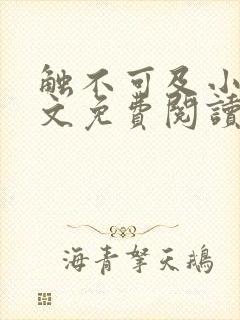 触不可及小
文免費閱讀
海青拏天鵝